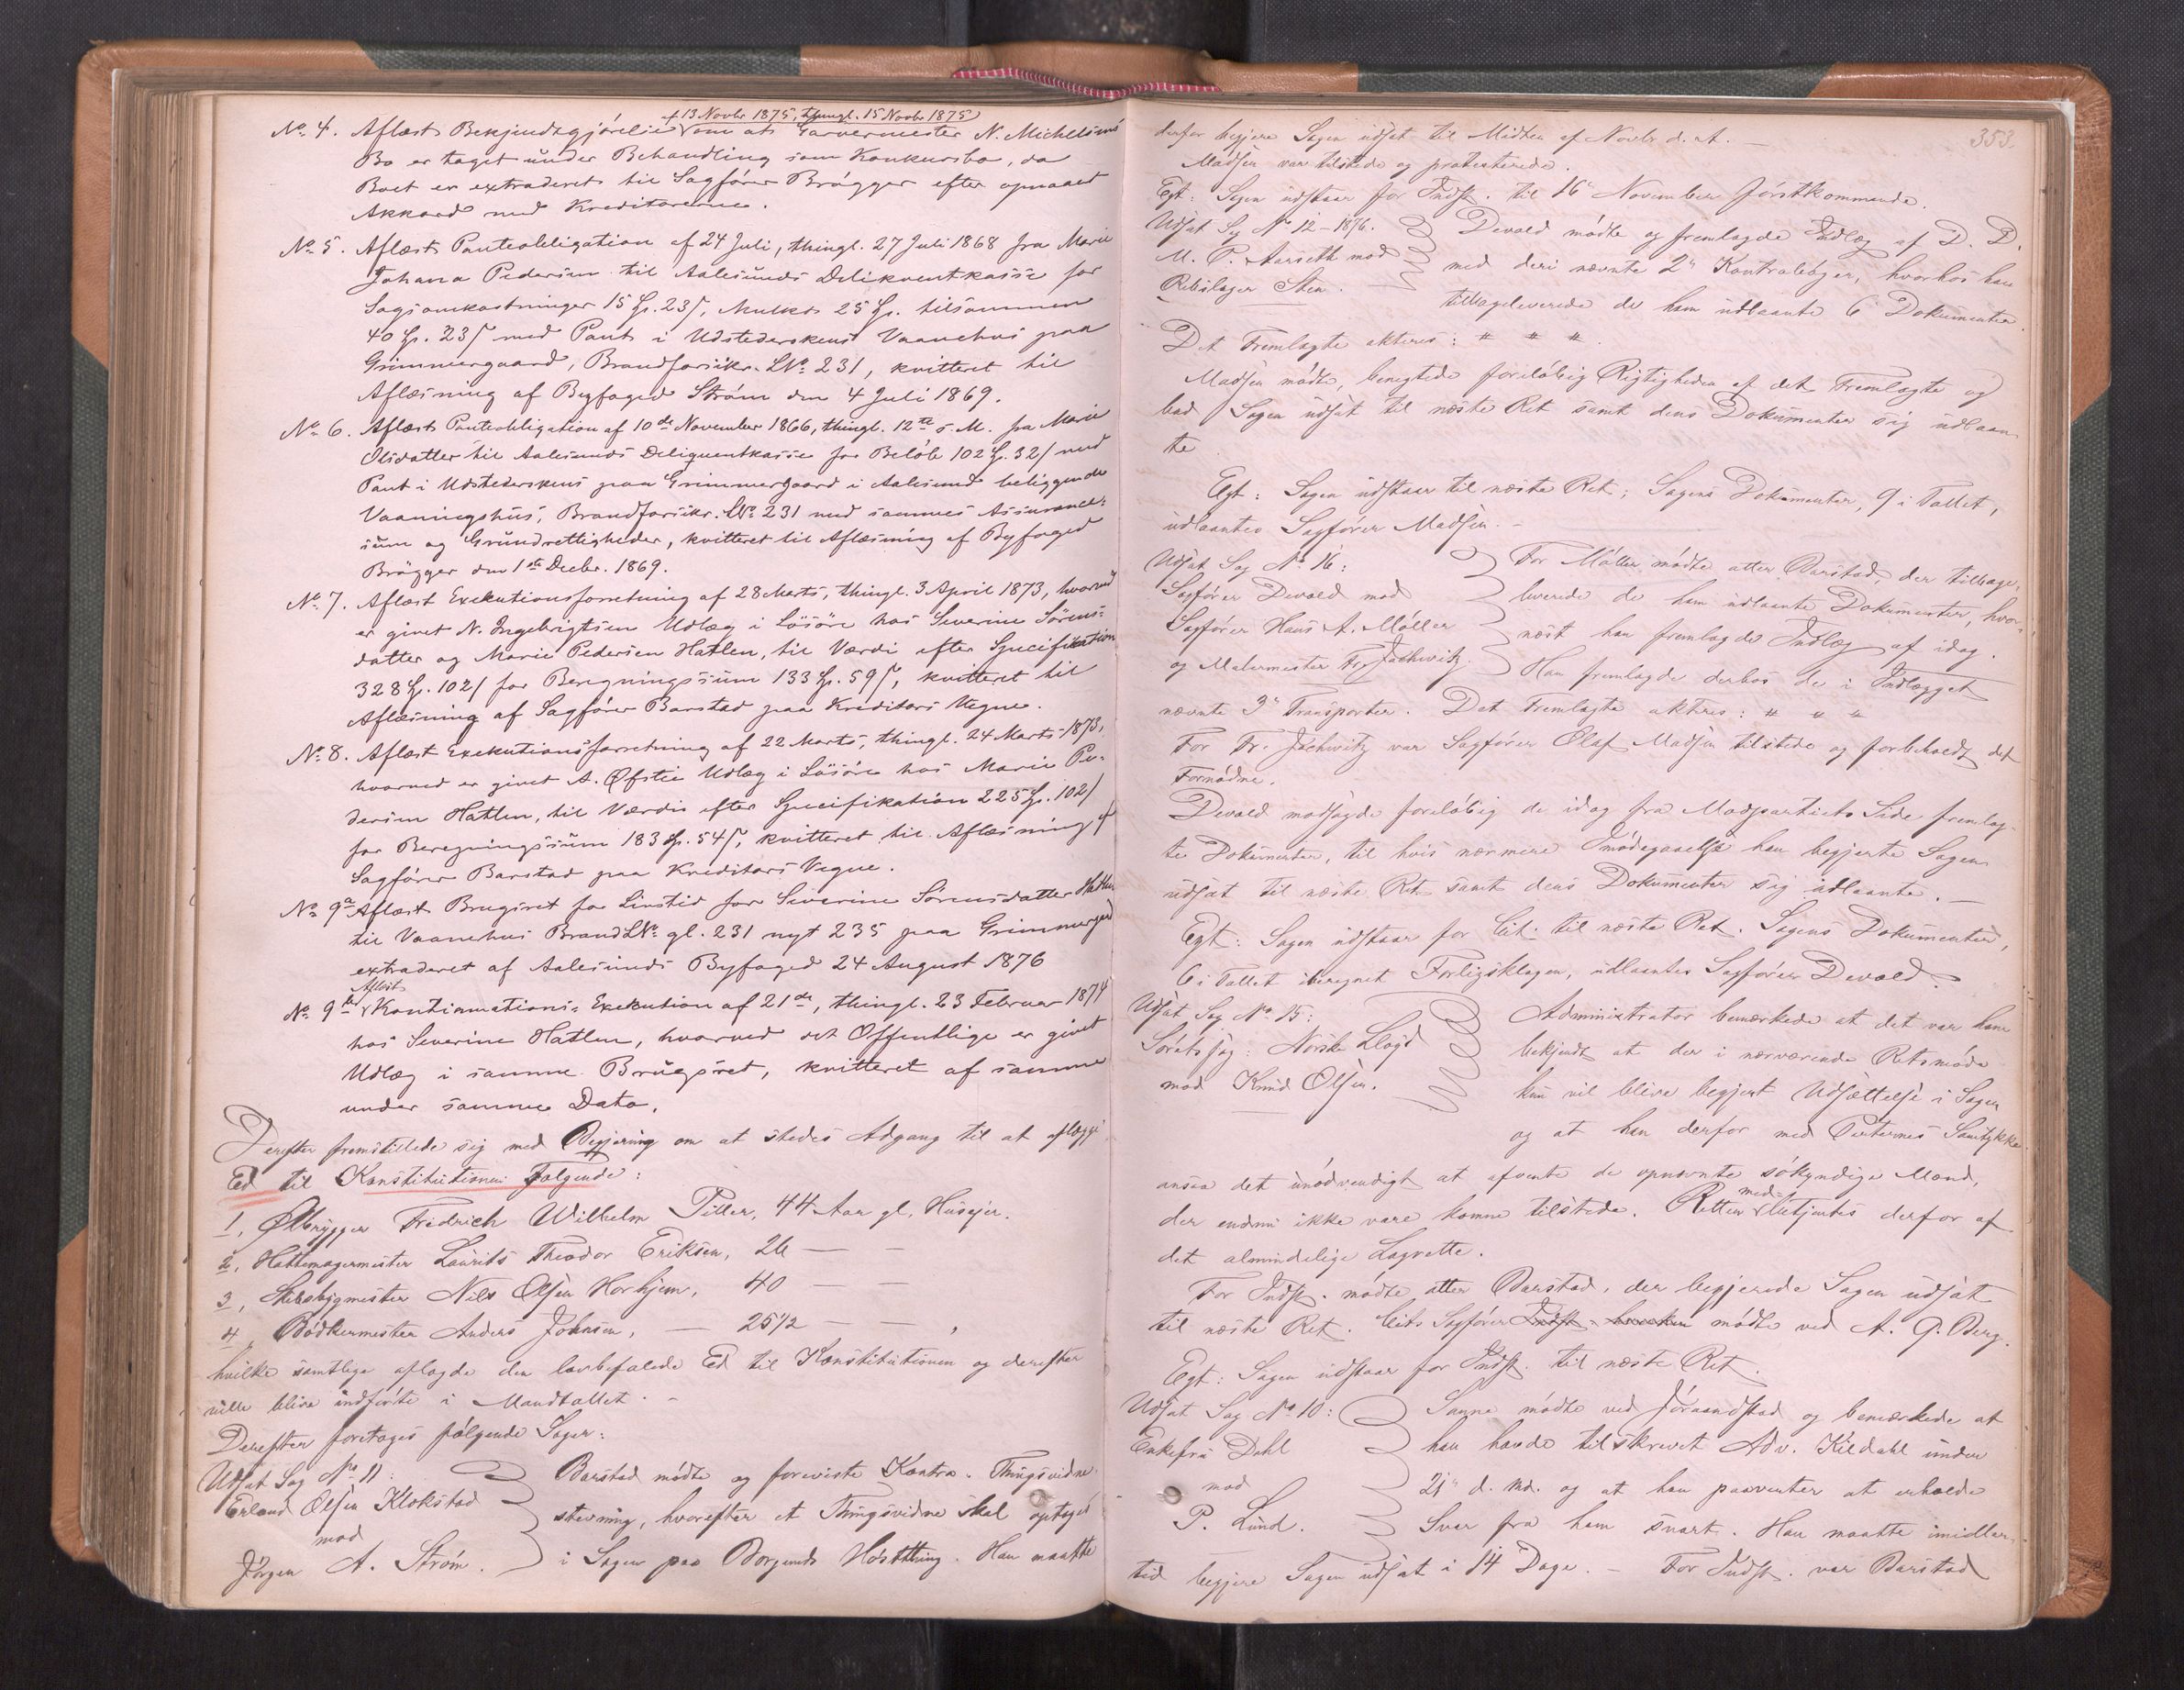 + 13 Novbr 1875, thingl. 15 Novbr 1875
No 4. Aflæst Bekjendtgjørelse om at Garvermester N. Michelsens
Bo er taget under Behandling som Konkursbo, da
Boet er extraderet til Sagfører Brøgger efter opnaaet
Akkord med Kreditorerne.
No 5. Aflæst Panteobligation af 24 Juli, thingl. 27 Juli 1868 fra Marie
Johana Pedersen til Aalesunds Delikventkasse for
Sagsomkostninger 15 Sp. 23 ß, Mulkt 25 Sp. tilsammen
40 Sp. 23 ß med Pant i Udstederskens Vaanehus paa
Grimmergaard, Brandforsikr. LNo 231, kvitteret til
Aflæsning af Byfoged Strøm den 4 Juli 1869.
No 6. Aflæst Panteobligation af 10de November 1866, thingl. 12te s. M. fra Marie
Olsdatter til Aalesunds Deliquentkasse for Beløb 102 Sp. 32 ß med
Pant i Udstederskens paa Grimmergaard i Aalesund beliggende
Vaaningshus, Brandforsikr. LNo 231 med sammes Assurance-
sum og Grundrettigheder, kvitteret til Aflæsning af Byfoged
Brøgger den 1ste Decbr. 1869.
No 7. Aflæst Exekutionsforretning af 28 Marts, thingl. 3 April 1873, hvorved
er givet N. Ingebrigtsen Udlæg i Løsøre hos Severine Sørens-
datter og Marie Pedersen Hatlen, til Værdi efter Specifikation
328 Sp. 102 ß for Beregningssum 133 Sp. 59 ß, kvitteret til
Aflæsning af Sagfører Barstad paa Kreditors Vegne.
No 8. Aflæst Exekutionsforretning af 22 Marts, thingl. 24 Marts 1873,
hvorved er givet A. Øfstie Udlæg i Løsøre hos Marie Pe-
dersen Hatlen, til Værdi efter Specifikation 225 Sp. 102 ß
for Beregningssum 183 Sp. 54 ß, kvitteret til Aflæsning af
Sagfører Barstad paa Kreditors Vegne.
No 9a Aflæst Brugsret for Livstid for Severine Sørensdatter Hatlen
til Vaanehus Brand LNo gl. 231 nyt 235 paa Grimmergrd
extraderet af Aalesunds Byfoged 24 August 1876
No 9b Aflæst Kontinuations-Exekution af 21de, thingl. 23 Februar 1874
hos Severine Hatlen, hvorved det Offentlige er givet
Udlæg i samme Brugsret, kvitteret af samme
under samme Dato.
Derefter fremstillede sig med Begjæring om at stedes Adgang til at aflægge
Ed til Konstitutionen Følgende:
1, Ølbrygger Fredrich Wilhelm Piller, 44 Aar gl, Huseier.
2, Hattemagermester Laurits Theodor Eriksen, 26 — —
3, Skibsbygmester Nils Olsen Horhjem, 40 — —
4, Bødkermester Anders Johnsen, — 25 1/2 — — ,
hvilke samtlige aflagde den lovbefalede Ed til Konstitutionen og derefter
ville blive indførte i Mandtallet. –
Derefter foretoges følgende Sager:
Udsat Sag No 11:
Erland Olsen Klokstad
mod
Jørgen A. Strøm.
Barstad mødte og foreviste Kontra-Thingsvidne-
stevning, hvorefter et Thingsvidne skal optages
i Sagen paa Borgunds Høstthing. Han maatte
353
derfor begjere Sagen udsat til Midten af Novbr d. A. –
Madsen var tilstede og protesterede.
Egt: Sagen udstaar for Indst. til 16de November førstkommende.
Udsat Sag No 12–1876.
M. P. Aarseth mod
Rebslager Sten.
Devold mødte og fremlagde Indlæg af D. D.
med deri nævnte 2de Kontrabøger, hvorhos han
tilbageleverede de ham udlaante 6 Dokumenter.
Det Fremlagte akteres: # # #.
Madsen mødte, benegtede foreløbig Rigtigheden af det Fremlagte og
bad Sagen udsat til næste Ret samt dens Dokumenter sig udlaan-
te
Egt: Sagen udstaar til næste Ret; Sagens Dokumenter, 9 i Tallet,
udlaantes Sagfører Madsen. –
Udsat Sag No 16:
Sagfører Devold mod
Sagfører Hans A. Møller
og Malermester Fr. Jschwitz.
For Møller mødte atter Barstad, der tilbage-
leverede de ham udlaante Dokumenter, hvor-
næst han fremlagde Indlæg af idag.
Han fremlagde derhos de i Indlægget
nævnte 3de Transporter. Det Fremlagte akteres: # # #
For Fr. Jschwitz var Sagfører Olaf Madsen tilstede og forbeholdt det
Fornødne.
Devold modsagde foreløbig de idag fra Modpartiets Side fremlag-
te Dokumenter, til hvis nærmere Imødegaaelse han begjerte Sagen
udsat til næste Ret samt dens Dokumenter sig udlaante. –
Egt: Sagen udstaar for Cit. til næste Ret. Sagens Dokumenter,
6 i Tallet iberegnet Forligsklagen, udlaantes Sagfører Devold.
Udsat Sag No 15:
Søretssag: Norske Lloyd
mod Knud Olsen.
Administrator bemærkede at det var ham
bekjendt at der i nærværende Retsmøde
kun vil blive begjert Udsættelse i Sagen
og at han derfor med Parternes Samtykke
ansaa det unødvendigt at afvente de opnævnte søkyndige Mænd,
der endnu ikke vare komne tilstede. Retten med betjentes derfor af
det almindelige Lagrette.
For Indst. mødte atter Barstad, der begjerede Sagen udsat
til næste Ret. Cits Sagfører mødte ved A. G. Berg.
Egt: Sagen udstaar for Indst. til næste Ret.
Udsat Sag No 10:
Enkefru Dahl
mod
P. Lund.
Sanne mødte ved Jøraandstad og bemærkede at
han havde tilskrevet Adv. Kildahl under
21de d. Md. og at han paaventer at erholde
Svar fra ham snart. Han maatte imidler-
tid begjere Sagen udsat i 14 Dage. – For Indst. var Barstad